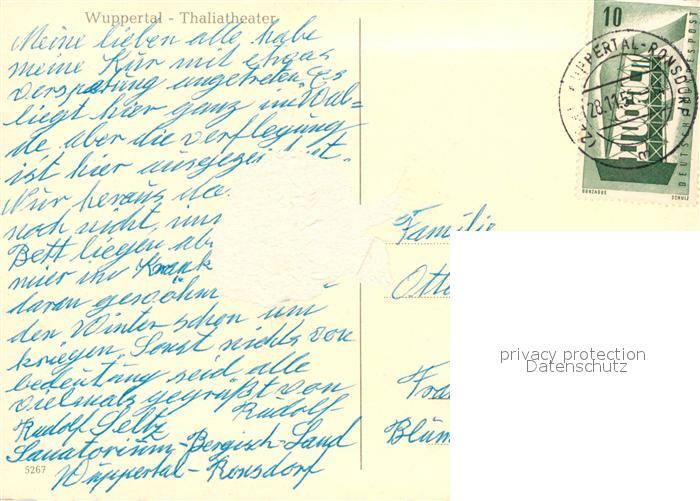 Wuppertal - Thaliatheater
Meine lieben alle, habe
meine Kur mit etwas
verspätung angetreten. Es
liegt hier ganz im Wal-
de, aber die verflegung
ist hier ausgezei t.
Nur heraus da
noch nicht, mus
Bett liegen ab
mier ins Krank
daran gewöhn
den Winter schon um
kriegen. Sonst nichts von
bedeutung seid alle
vielmals gegrüßt von
Rudolf
Rudolf Seltz
Sanatorium-Bergisch-Land
Wuppertal-Ronsdorf
5267
10
DEUTSCHE BUNDESPOST
EUROPA
GONZAGUE
SCHNELL
WUPPERTAL-RONSDORF
28.11.5
Familie
Otto
Fra
Blum
privacy protection
Datenschutz